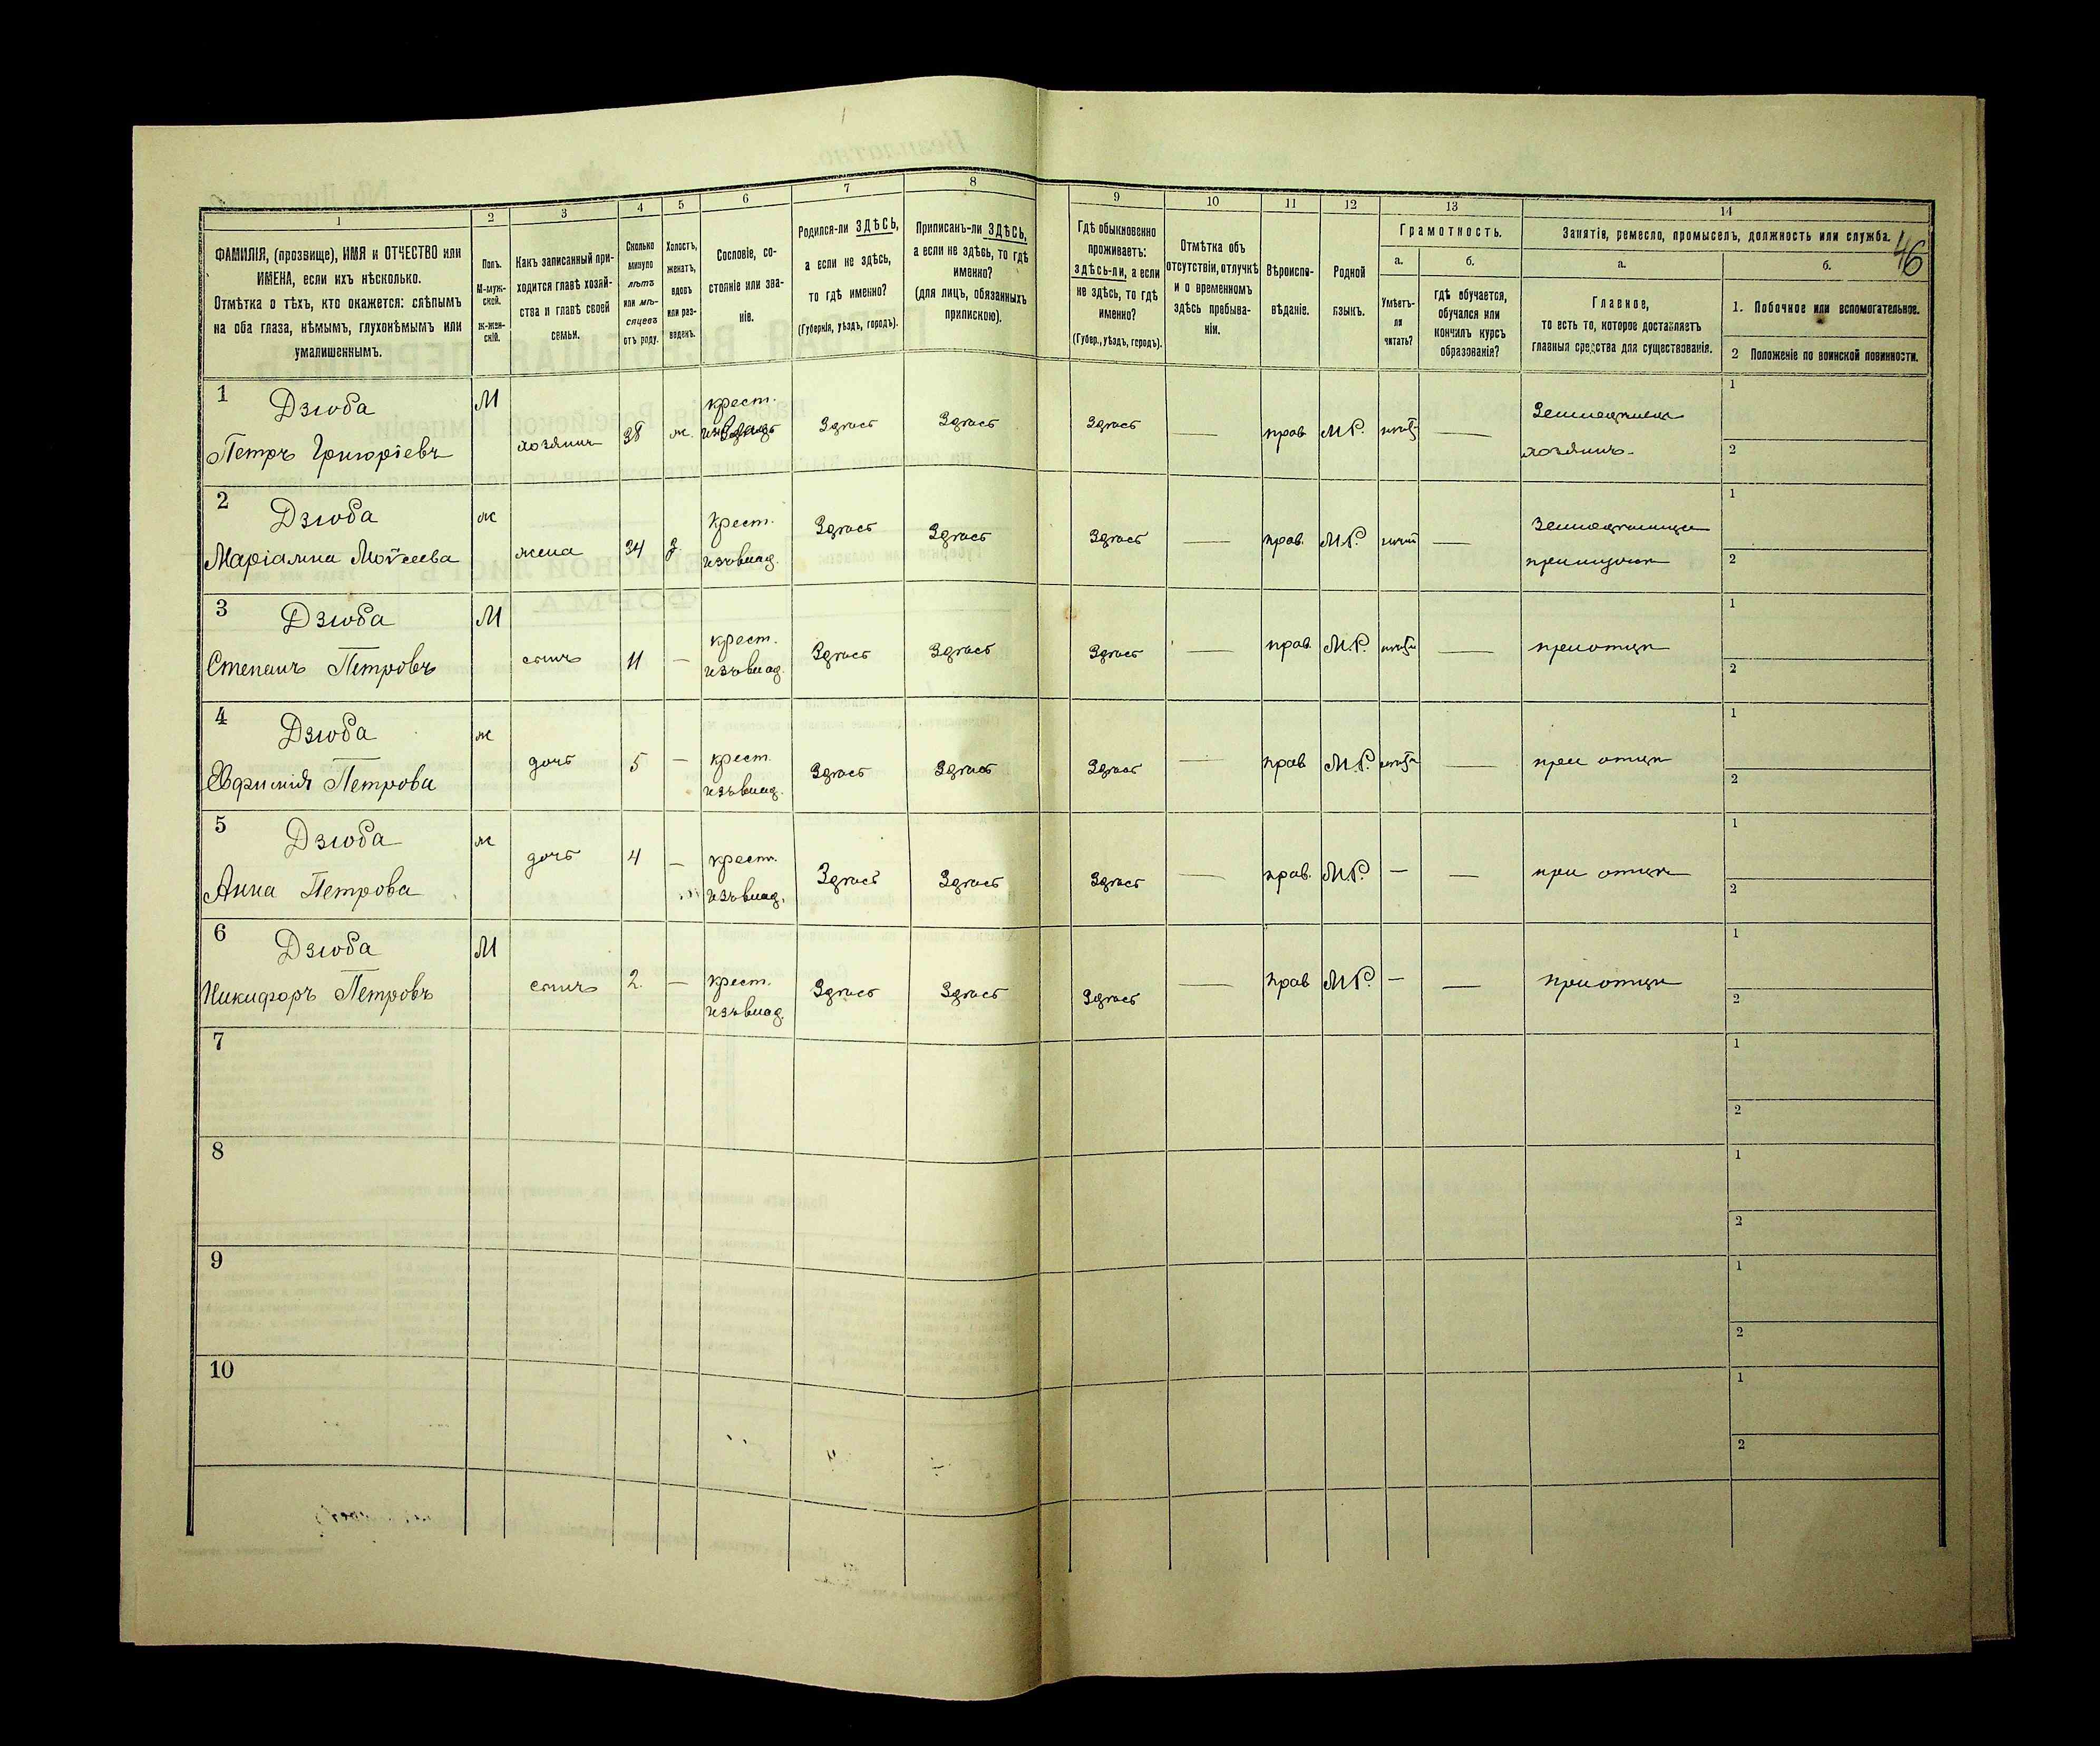 46
1 2 3 4 5 6 7 8 9 10 11 12 13 14
ФАМИЛІЯ, (прозвище), ИМЯ и ОТЧЕСТВО или
ИМЕНА, если ихъ нѣсколько.
Отмѣтка о тѣхъ, кто окажется: слѣпымъ
на оба глаза, нѣмымъ, глухонѣмымъ или
умалишеннымъ.
Полъ.
М-муж-
ской.
ж-жен-
скій.
Какъ записанный при-
ходится главѣ хозяй-
ства и главѣ своей
семьи.
Сколько
минуло
лѣтъ
или мѣ-
сяцевъ
отъ роду.
Холостъ,
женатъ,
вдовъ
или раз-
веденъ.
Сословіе, со-
стояніе или зва-
ніе.
Родился-ли ЗДѢСЬ,
а если не здѣсь,
то гдѣ именно?
(Губернія, уѣздъ, городъ).
Приписанъ-ли ЗДѢСЬ,
а если не здѣсь, то гдѣ
именно?
(для лицъ, обязанныхъ
припискою).
Гдѣ обыкновенно
проживаетъ:
здѣсь-ли, а если
не здѣсь, то гдѣ
именно?
(Губер., уѣздъ, городъ).
Отмѣтка объ
отсутствіи, отлучкѣ
и о временномъ
здѣсь пребыва-
ніи.
Вѣроиспо-
вѣданіе.
Родной
языкъ.
Грамотность.
а.
Умѣетъ-
ли
читать?
б.
гдѣ обучается,
обучался или
кончилъ курсъ
образованія?
Занятія, ремесло, промыселъ, должность или служба.
а.
Главное,
то есть то, которое доставляетъ
главныя средства для существованія.
б.
1. Побочное или вспомогательное.
2 Положеніе по воинской повинности.
1 Дзюба М крест. 1
Петръ Григоріевъ хозяинъ 38 ж. Здѣсь Здѣсь Здѣсь — прав М.Р. — хозяинъ 2
2 Дзюба ж крест. 1
Маріамна Моѵсеева жена 34 з. изъ влад. Здѣсь Здѣсь Здѣсь — прав. М.Р. — 2
3 Дзюба М крест. 1
Степанъ Петровъ сынъ 11 — изъ влад. Здѣсь Здѣсь Здѣсь — прав. М.Р. — при отцѣ 2
4 Дзюба ж крест. 1
Евфимія Петрова дочь 5 — изъ влад. Здѣсь Здѣсь Здѣсь — прав М.Р. — при отцѣ 2
5 Дзюба ж крест. 1
Анна Петрова дочь 4 — изъ влад. Здѣсь Здѣсь Здѣсь — прав. М.Р. — — при отцѣ 2
6 Дзюба М крест. 1
Никифоръ Петровъ сынъ 2. — изъ влад. Здѣсь Здѣсь Здѣсь — прав М.Р. — — при отцѣ 2
7 1
2
8 1
2
9 1
2
10 1
2